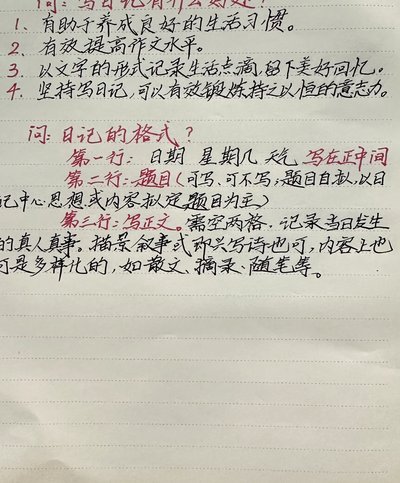 问:写日记有什么好处?
1. 有助于养成良好的生活习惯。
2. 有效提高作文水平。
3. 以文字的形式记录生活点滴,留下美好回忆。
4. 坚持写日记,可以有效锻炼持之以恒的意志力。
问:日记的格式?
第一行:日期 星期几 天气 写在正中间
第二行:题目(可写、可不写;题目自拟,以日
记中心思想或内容拟定题目为主)
第三行:写正文。需空两格,记录当日发生
的真人真事。描景叙事或即兴写诗也可,内容上也
可是多样化的,如散文、摘录、随笔等。